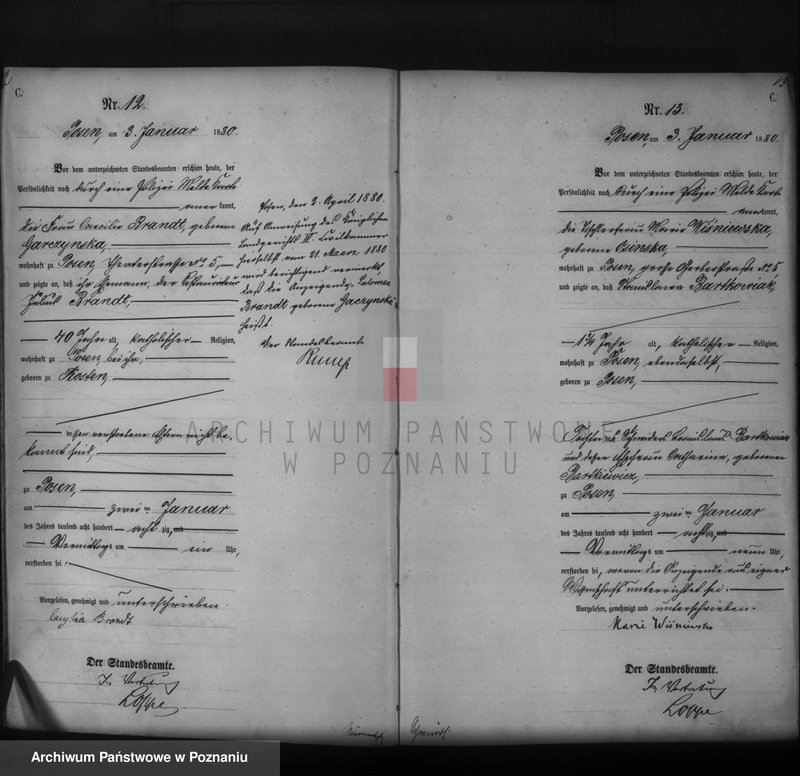 C.
Nr. 12.
Posen, am 3. Januar 1880.
Vor dem unterzeichneten Standesbeamten erschien heute, der
Persönlichkeit nach durch eine Polizei Melde Karte
aner kannt,
die Frau Caecilie Brandt, geborene
Garczynska,
wohnhaft zu Posen, Theaterstrasse No 5,
und zeigte an, daß ihr Ehemann, der Restaurateur
Julius Brandt,
40 Jahre alt, katholischer Religion,
wohnhaft zu Posen bei ihr,
geboren zu Kosten,
dessen verstorbene Eltern nicht be-
kannt sind,
zu Posen,
am zwei ten Januar
des Jahres tausend acht hundert acht zig, und
Vormittags um ein Uhr,
verstorben sei.
Vorgelesen, genehmigt und unterschrieben.
Brandt
Der Standesbeamte.
In Vertretung
Loppe
Posen, den 2. April 1880.
Auf Anweisung des Königlichen
Landgerichts II. Civilkammer
hierselbst vom 21. Maerz 1880
wird berichtigend vermerkt,
daß die Anzeigende Salomea
Brandt geborene Gaczynska
heißt.
Der Standesbeamte
C.
Nr. 13.
Posen, am 3. Januar 1880.
Vor dem unterzeichneten Standesbeamten erschien heute, der
Persönlichkeit nach durch eine Polizei Melde Karte
aner kannt,
die Tischlerfrau Marie Wiśniewska,
geborene Osinska,
wohnhaft zu Posen, große Gerberstraße No 5
und zeigte an, daß Stanislawa Bartkowiak,
1¾ Jahr alt, katholischer Religion,
wohnhaft zu Posen, ebendaselbst,
geboren zu Posen,
Tochter des Schneiders Bronislaus Bartkowiak
und dessen Ehefrau Catharina, geborenen
Bartkiewicz,
zu Posen,
am zwei ten Januar
des Jahres tausend acht hundert acht zig, und
Vormittags um neun Uhr,
verstorben sei, wovon die Anzeigende aus eigner
Wissenschaft unterrichtet sei.
Vorgelesen, genehmigt und unterschrieben.
Marie Wiśniewska
Der Standesbeamte.
In Vertretung
Loppe
ARCHIWUM PAŃSTWOWE
W POZNANIU
Archiwum Państwowe w Poznaniu